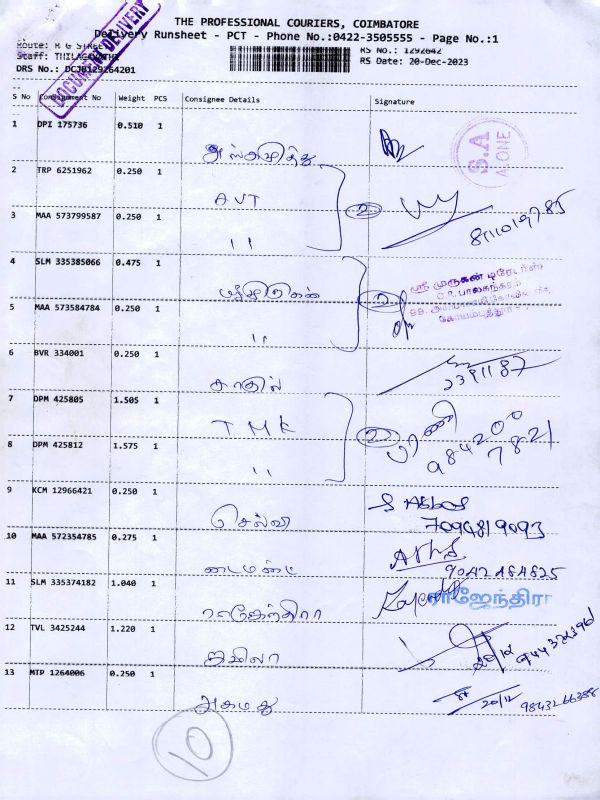 THE PROFESSIONAL COURIERS, COIMBATORE
Delivery Runsheet - PCT - Phone No.:0422-3505555 - Page No.:1
Route: R G STREET
RS No.: 1292642
Staff: THILAGAVATHI
RS Date: 20-Dec-2023
DRS No.: DCJB129264201
DELIVERY
S No Consignment No Weight PCS Consignee Details Signature
1 DPI 175736 0.510 1
S.A
2 TRP 6251962 0.250 1
AVT
2
3 MAA 573799587 0.250 1
"
4 SLM 335385066 0.475 1
ஸ்ரீ முருகன் டிரேடர்ஸ்
2
5 MAA 573584784 0.250 1
"
6 BVR 334001 0.250 1
2391187
7 DPM 425805 1.505 1
TMK
2
8 DPM 425812 1.575 1
"
98420 0
7821
9 KCM 12966421 0.250 1
செல்வி
7094819093
10 MAA 572354785 0.275 1
டைமண்ட்
9042484825
11 SLM 335374182 1.040 1
ராஜேந்திரா
ராஜேந்திரா
12 TVL 3425244 1.220 1
13 MTP 1264006 0.250 1
அகமது
20/12 9843266388
10